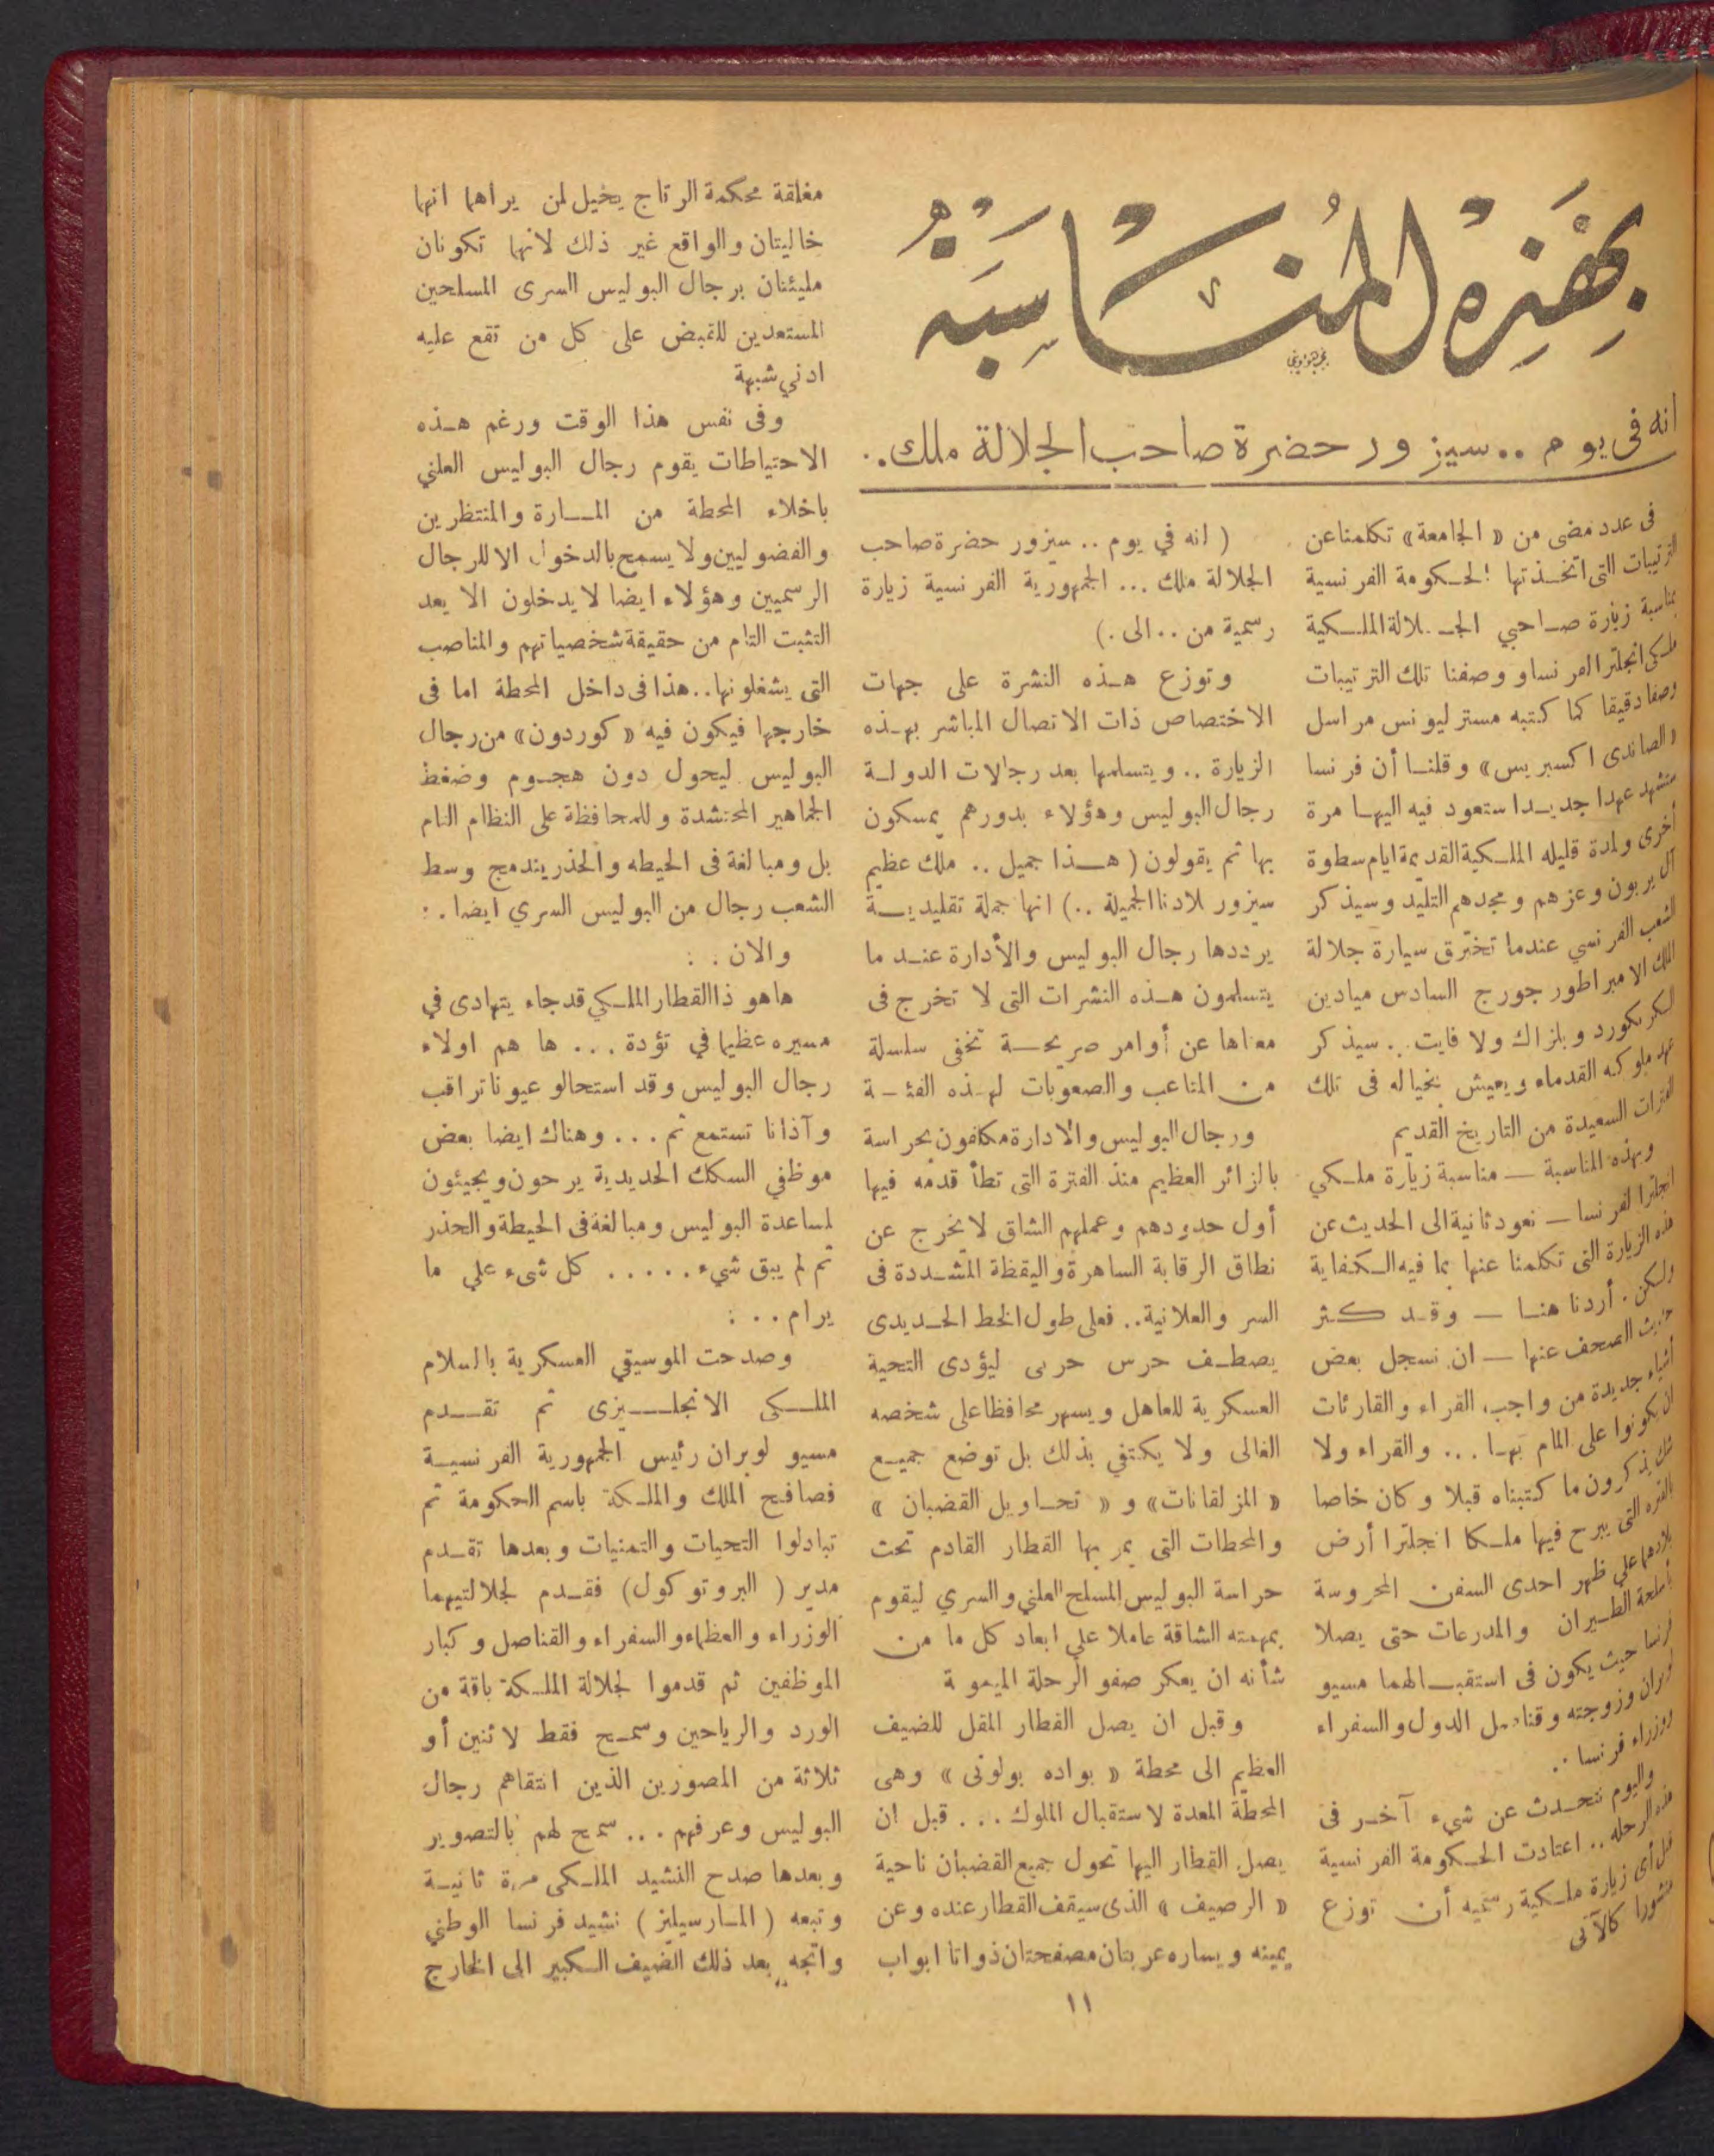 بهذه المناسبة
انه فى يوم .. سيزور حضرة صاحب الجلالة ملك..
فى عدد مضى من « الجامعة » تكلمنا عن
الترتيبات التى اتخـذتها الحـكومة الفرنسية
بمناسبة زيارة صـاحبي الجـلالة الملـكية
ملـكى انجلترا لفرنسا ووصفنا تلك الترتيبات
وصفا دقيقا كما كتبه مستر ليونس مراسل
«الصاندى اكسبريس» وقلنـا أن فرنسا
ستشهد عهدا جديـدا ستعود فيه اليهـا مرة
أخرى ولمدة قليله الملـكية القديمة ايام سطوة
آل بربون وعزهم ومجدهم التليد وسيذكر
الشعب الفرنسي عندما تخترق سيارة جلالة
الملك الامبراطور جورج السادس ميادين
الـكونكورد وبلزاك ولا فايت .. سيذكر
عهد ملوكه القدماء ويعيش بخياله فى تلك
الفترات السعيدة من التاريخ القديم
وبهذه المناسبة — مناسبة زيارة ملـكي
انجلترا لفرنسا — نعود ثانية الى الحديث عن
هذه الزيارة التى تكلمنا عنها بما فيه الـكفاية
ولـكن . أردنا هنـا — وقـد كـثر
حديث الصحف عنها — ان نسجل بعض
أشياء جديدة من واجب القراء والقارئات
ان يكونوا على المام بهـا ... والقراء ولا
شك يذكرون ما كتبناه قبلا وكان خاصا
بالفتره التى يبرح فيها ملـكا انجلترا أرض
بلادهما علي ظهر احدى السفن المحروسة
بأسلحة الطـيران والمدرعات حتى يصلا
فرنسا حيث يكون فى استقبـالهما مسيو
لوبران وزوجته وقناصل الدول والسفراء
ووزراء فرنسا ..
واليوم نتحـدث عن شيء آخـر فى
هذه الرحله .. اعتادت الحـكومة الفرنسية
قبل أى زيارة ملـكية رسميه أن توزع
منشورا كالآتى
( انه في يوم .. سيزور حضرة صاحب
الجلالة ملك ... الجمهورية الفرنسية زيارة
رسمية من .. الى .)
وتوزع هـذه النشرة على جهات
الاختصاص ذات الاتصال المباشر بهـذه
الزيارة .. ويتسلمها بعد رجالات الدولـة
رجال البوليس وهؤلاء بدورهم يمسكون
بها ثم يقولون ( هـذا جميل .. ملك عظيم
سيزور لادنا الجميلة ..) انها جملة تقليديـة
يرددها رجال البوليس والأدارة عنـد ما
يتسلمون هـذه النشرات التى لا تخرج فى
معناها عن أوامر صريحـة تخفى سلسلة
من المتاعب والصعوبات لهـذه الفئـة
ورجال البوليس والادارة مكلفون بحراسة
بالزائر العظيم منذ الفترة التى تطأ قدمه فيها
أول حدودهم وعملهم الشاق لا يخرج عن
نطاق الرقابة الساهرة واليقظة المشـددة فى
السر والعلانية.. فعلى طول الخط الحـديدى
يصطـف حرس حربى ليؤدى التحية
العسكرية للعاهل ويسهر محافظا على شخصه
الغالى ولا يكتفي بذلك بل توضع جميـع
« المزلقانات» و « تحـاويل القضبان »
والمحطات التى يمر بها القطار القادم تحت
حراسة البوليس المسلح العلني والسري ليقوم
بمهمته الشاقة عاملا علي ابعاد كل ما من
شأنه ان يعكر صفو الرحلة الميمو ة
وقبل ان يصل القطار المقل للضيف
العظيم الى محطة « بواده بولونى » وهى
المحطة المعدة لاستقبال الملوك ... قبل ان
يصل القطار اليها تحول جميع القضبان ناحية
« الرصيف » الذى سيقف القطار عنده وعن
يمينه ويساره عربتان مصفحتان ذواتا ابواب
مغلقة محكمة الرتاج يخيل لمن يراهما انهما
خاليتان والواقع غير ذلك لانهما تكونان
مليئتان برجال البوليس السرى المسلحين
المستعدين للقبض على كل من تقع عليه
ادني شبهة
وفى نفس هذا الوقت ورغم هـذه
الاحتياطات يقوم رجال البوليس العلني
باخلاء المحطة من المـارة والمنتظرين
والفضوليين ولا يسمح بالدخول الا للرجال
الرسميين وهؤلاء ايضا لا يدخلون الا بعد
التثبت التام من حقيقة شخصياتهم والمناصب
التى يشغلونها.. هذا فى داخل المحطة اما فى
خارجها فيكون فيه « كوردون» من رجال
البوليس ليحول دون هجـوم وضغط
الجماهير المحتشدة وللمحافظة على النظام التام
بل ومبالغة فى الحيطه والحذر يندمج وسط
الشعب رجال من البوليس السري ايضا . :
والان . :
هاهو ذا القطار الملـكي قد جاء يتهادى في
مسيره عظيما في تؤدة ... ها هم اولاء
رجال البوليس وقد استحالو عيونا تراقب
وآذانا تستمع ثم ... وهناك ايضا بعض
موظفي السكك الحديدية يرحون ويجيئون
لمساعدة البوليس ومبالغة فى الحيطة والحذر
ثم لم يبق شيء ..... كل شىء علي ما
يرام .. :
وصدحت الموسيقي العسكرية بالسلام
الملـكى الانجلـيزى ثم تقـدم
مسيو لوبران رئيس الجمهورية الفرنسيـة
فصافح الملك والملـكة باسم الحكومة ثم
تبادلوا التحيات والتمنيات وبعدها تقـدم
مدير ( البروتوكول) فقـدم لجلالتيهما
الوزراء والعظماء والسفراء والقناصل وكبار
الموظفين ثم قدموا لجلالة الملـكة باقة من
الورد والرياحين وسمـح فقط لاثنين أو
ثلاثة من المصورين الذين انتقاهم رجال
البوليس وعرفهم ... سمح لهم بالتصوير
وبعدها صدح النشيد الملـكى مرة ثانيـة
وتبعه ( المـارسيليز ) نشيد فرنسا الوطني
واتجه بعد ذلك الضيف الـكبير الى الخارج
١١